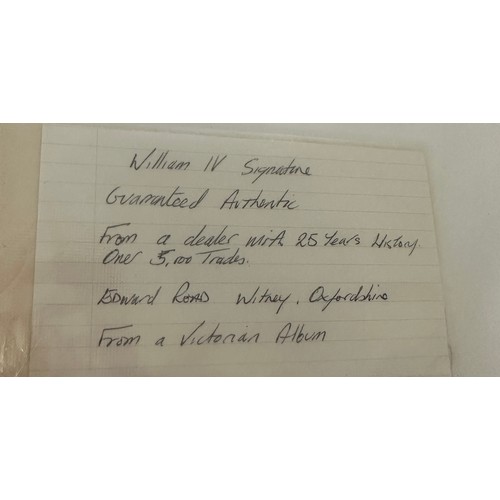 William IV Signature
Guaranteed Authentic
From a dealer with 25 Years History.
Over 5,000 Trades.
Edward Road Witney, Oxfordshire
From a Victorian Album